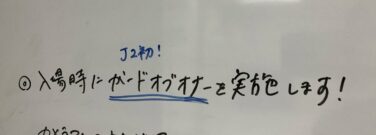 J2初!
◎入場時にガードオブオナーを実施します!